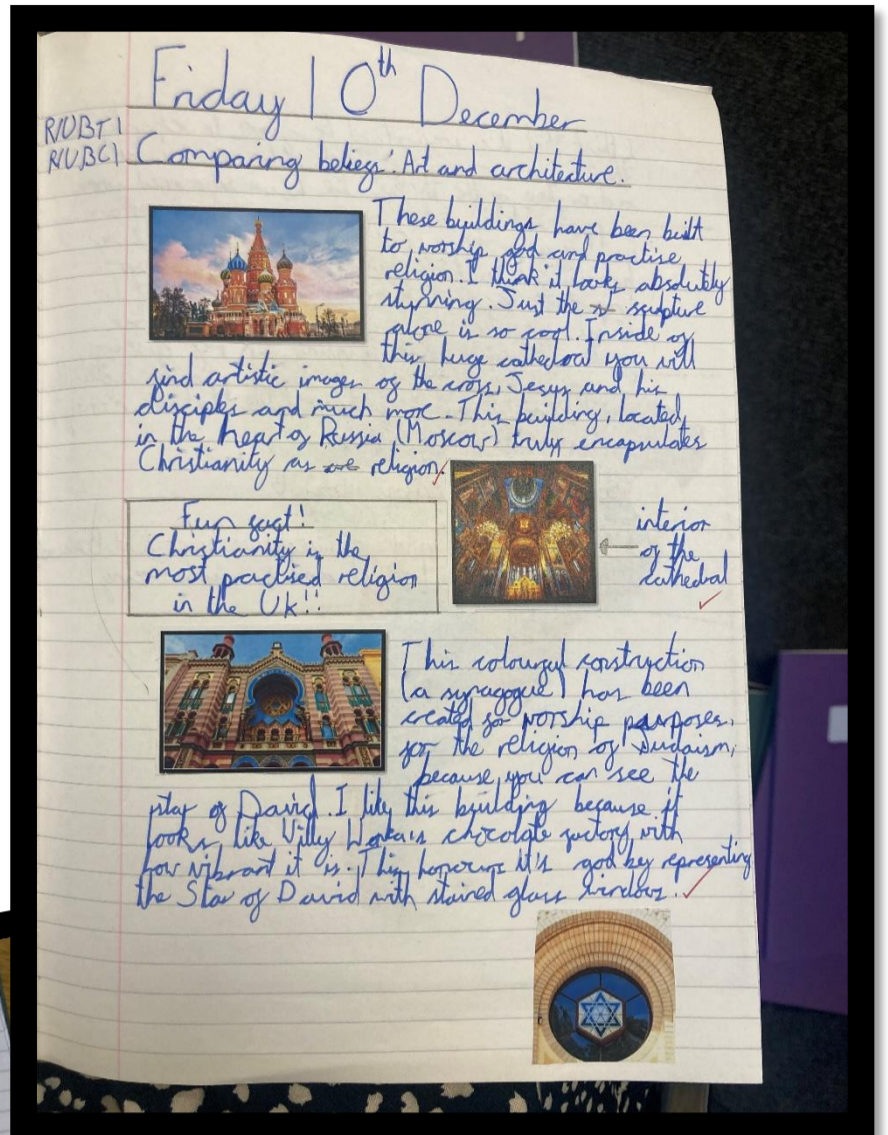 Friday 10th December
R/UBT1
R/UBC1
Comparing beliefs: Art and architecture.
These buildings have been built
to worship god and practise
religion. I think it looks absolutely
stunning. Just the sculpture
alone is so cool. Inside of
this huge cathedral you will
find artistic images of the cross, Jesus and his
disciples and much more. This building, located
in the heart of Russia (Moscow) truly encapsulates
Christianity as religion.
Fun fact!
Christianity is the
most practised religion
in the Uk!!
interior
of the
cathedral
This colourful construction
(a synagogue) has been
created for worship purposes,
for the religion of Judaism,
because you can see the
star of David. I like this building because it
looks like Willy Wonka's chocolate factory with
how vibrant it is. This honours it's god by representing
the Star of David with stained glass windows.